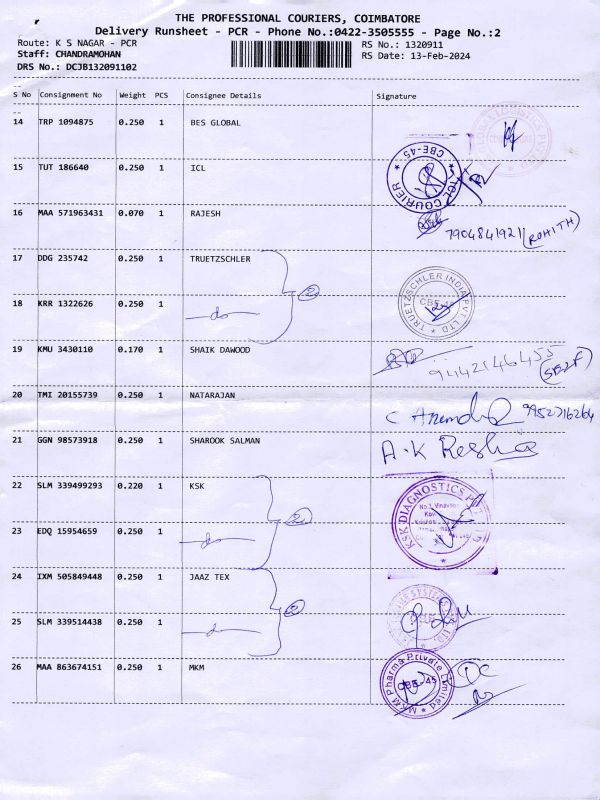 THE PROFESSIONAL COURIERS, COIMBATORE
Delivery Runsheet - PCR - Phone No.:0422-3505555 - Page No.:2
Route: K S NAGAR - PCR
RS No.: 1320911
Staff: CHANDRAMOHAN
RS Date: 13-Feb-2024
DRS No.: DCJB132091102
S No Consignment No Weight PCS Consignee Details Signature
14 TRP 1094875 0.250 1 BES GLOBAL
15 TUT 186640 0.250 1 ICL
ICL COURIER CBE-45
16 MAA 571963431 0.070 1 RAJESH
7904841921 (ROHITH)
17 DDG 235742 0.250 1 TRUETZSCHLER
TRUETZSCHLER INDIA PVT. LTD
18 KRR 1322626 0.250 1 do
2
19 KMU 3430110 0.170 1 SHAIK DAWOOD
9442146455
20 TMI 20155739 0.250 1 NATARAJAN
9952716264
21 GGN 98573918 0.250 1 SHAROOK SALMAN
A.K Resha
22 SLM 339499293 0.220 1 KSK
KSK DIAGNOSTICS
23 EDQ 15954659 0.250 1 do
2
24 IXM 505849448 0.250 1 JAAZ TEX
2
25 SLM 339514438 0.250 1 d
26 MAA 863674151 0.250 1 MKM
MKM Pharma Private Limited
CBE-45